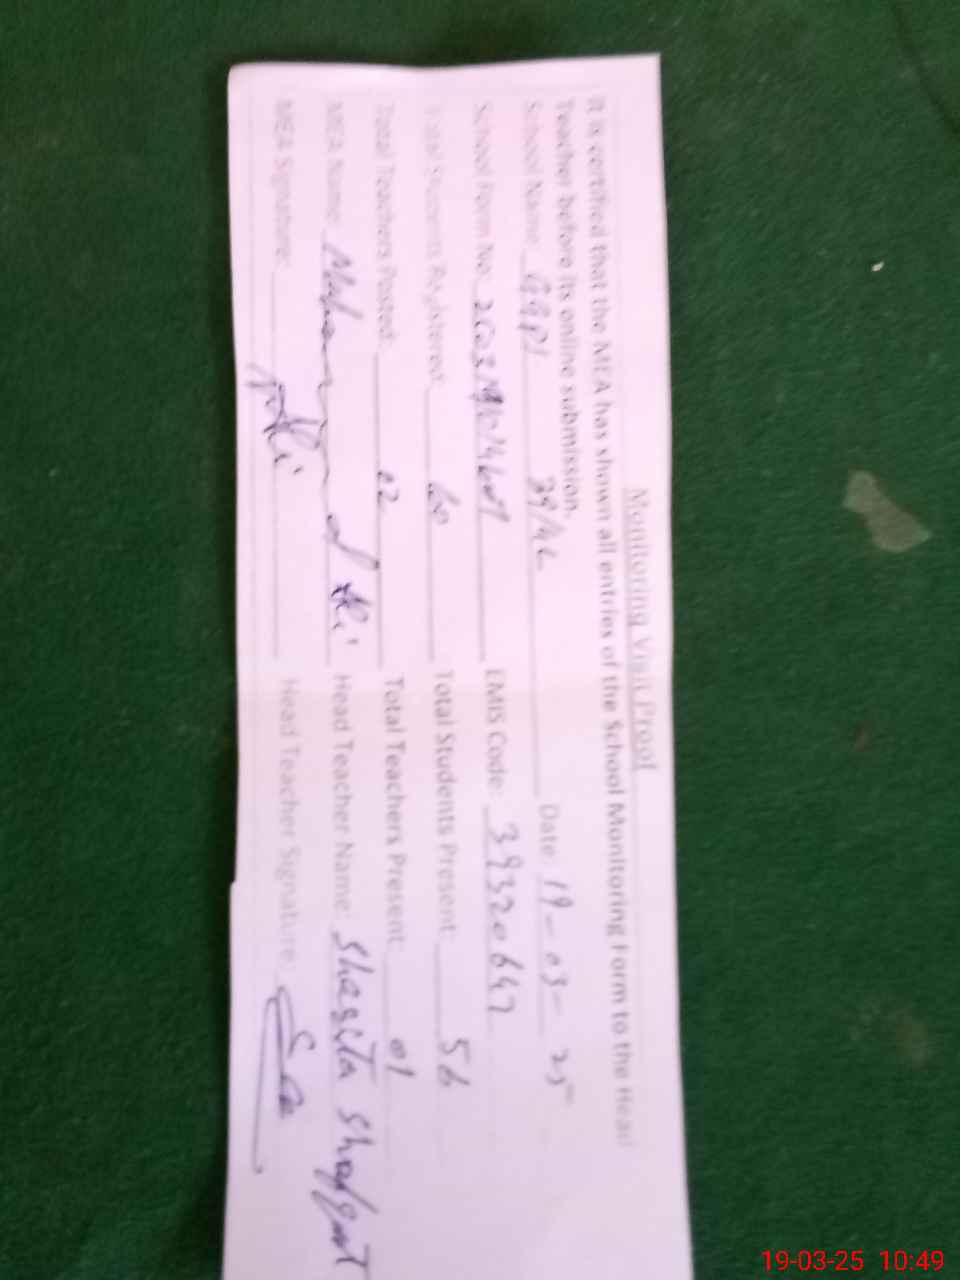 Monitoring Visit Proof
It is certified that the MEA has shown all entries of the School Monitoring Form to the Head
Teacher before its online submission.
School Name GGPS 39/4L Date: 19-03-25
School Form No. EMIS Code: 39320647
Total Students Registered: 60 Total Students Present: 56
Total Teachers Posted: 02 Total Teachers Present: 01
MEA Name: Ali Head Teacher Name: Shagufta Shafqat
MEA Signature: Head Teacher Signature:
19-03-25 10:49